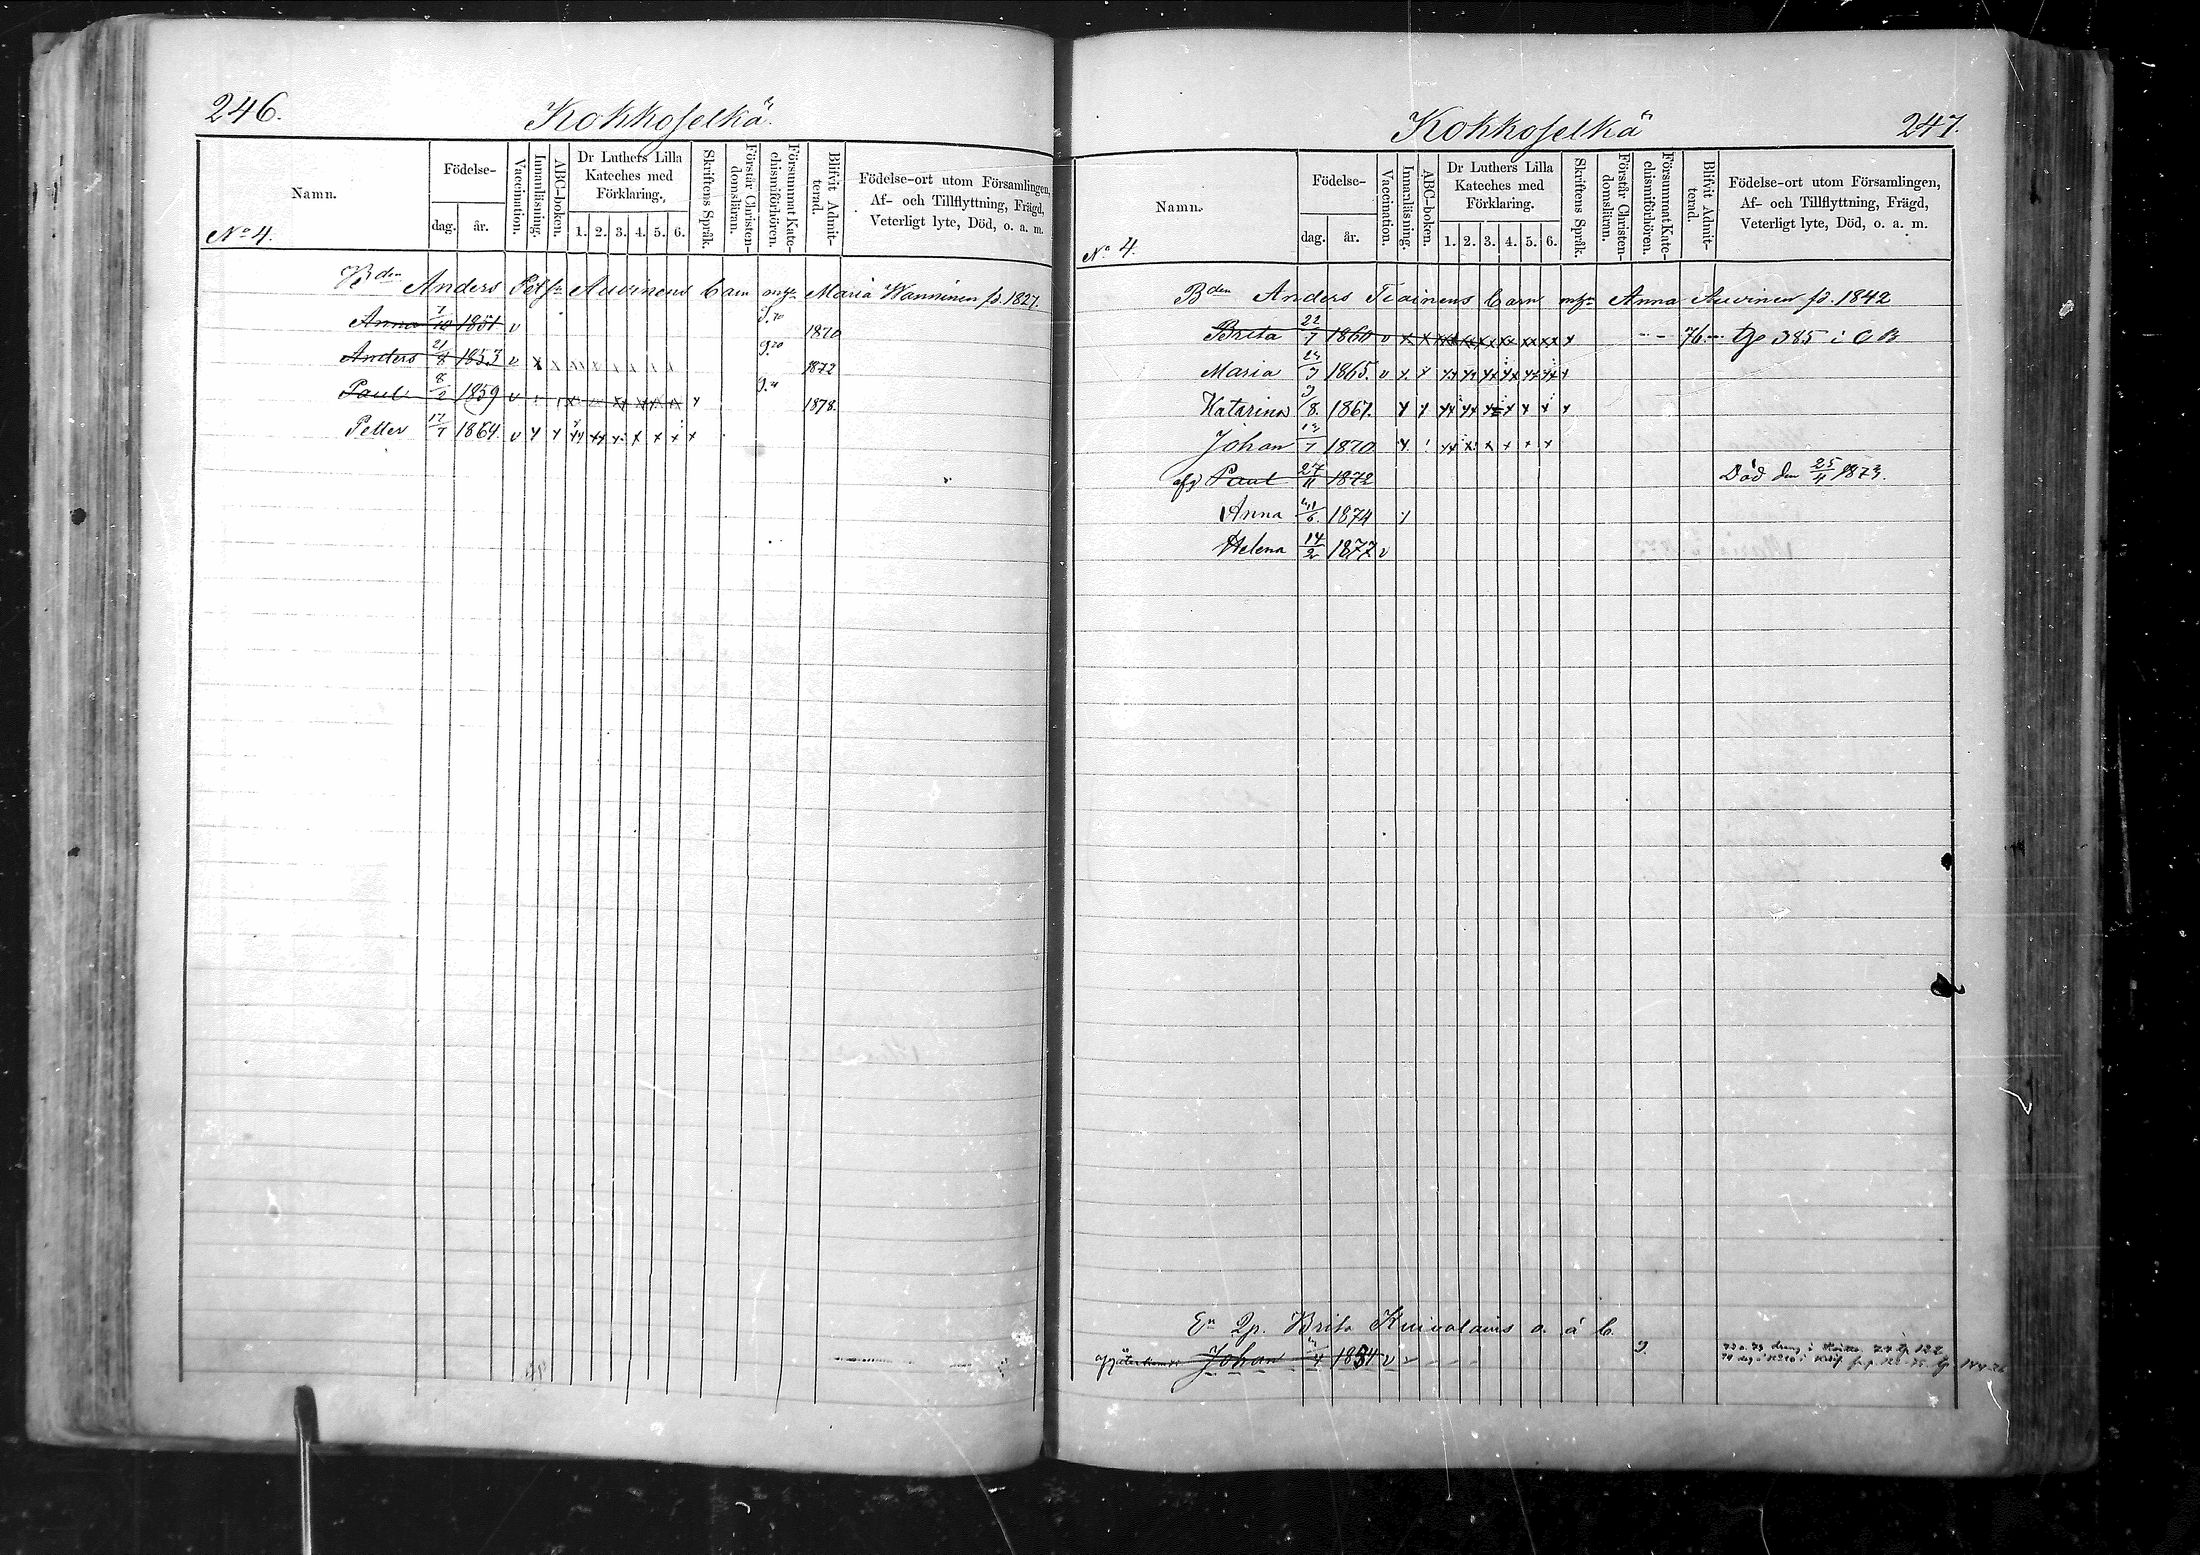 246.
Kokkoselkä
Namn.
Födelse-
dag.
år.
Vaccination.
Innanläsning.
ABC-boken.
Dr Luthers Lilla
Kateches med
Förklaring.
1. 2. 3. 4. 5. 6.
Skriftens Språk.
Förstår Christen-
domsläran.
Försummat Kate-
chismiförhören.
Blifvit Admit-
terad.
Födelse-ort utom Församlingen,
Af- och Tillflyttning, Frägd,
Veterligt lyte, Död, o. a. m.
No 4.
Bden Anders Auvinens barn Maria Wanninen f. 1827.
Anna 7/10 1851 v 1870
Anders 21/8 1853 v x 1872
Paul 8/2 1859 v x 1878.
Petter 17/7 1864. v x x x x x x x x x
Kokkoselkä
247.
Namn.
Födelse-
dag.
år.
Vaccination.
Innanläsning.
ABC-boken.
Dr Luthers Lilla
Kateches med
Förklaring.
1. 2. 3. 4. 5. 6.
Skriftens Språk.
Förstår Christen-
domsläran.
Försummat Kate-
chismiförhören.
Blifvit Admit-
terad.
Födelse-ort utom Församlingen,
Af- och Tillflyttning, Frägd,
Veterligt lyte, Död, o. a. m.
No 4.
Bden Anders Tiainens barn Anna Auvinen f. 1842
Brita 22/7 1860 v x x 76 385 i C B
Maria 1865. v x x
Katarina 3/8. 1867. x x
Johan 1870 x
Paul 27/11 1872 Död den 25/4 1873.
Anna 1874
Helena 14/2 1877 v
Brita Kuivalains
Johan 1854 v